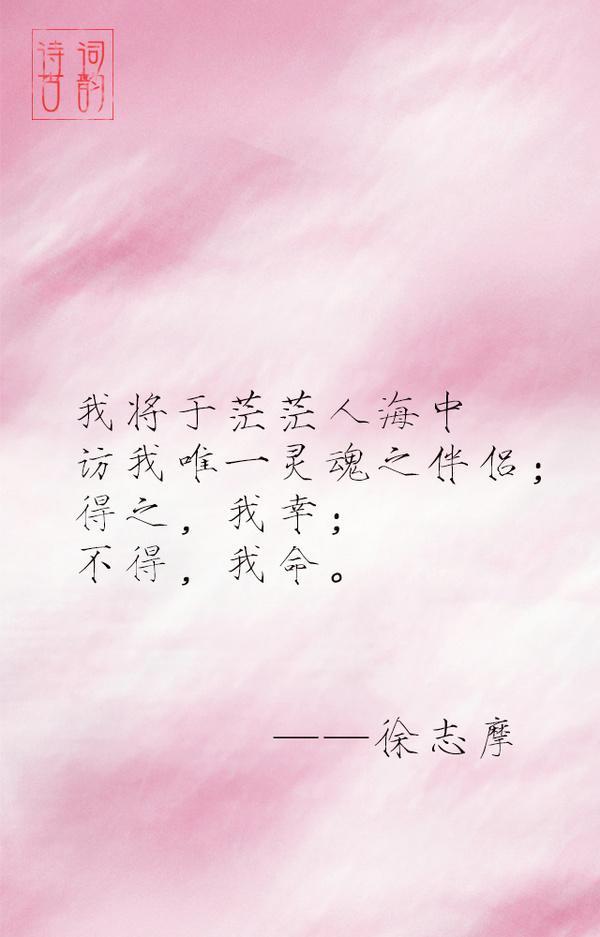 诗词
古韵
我将于茫茫人海中
访我唯一灵魂之伴侣；
得之，我幸；
不得，我命。
——徐志摩